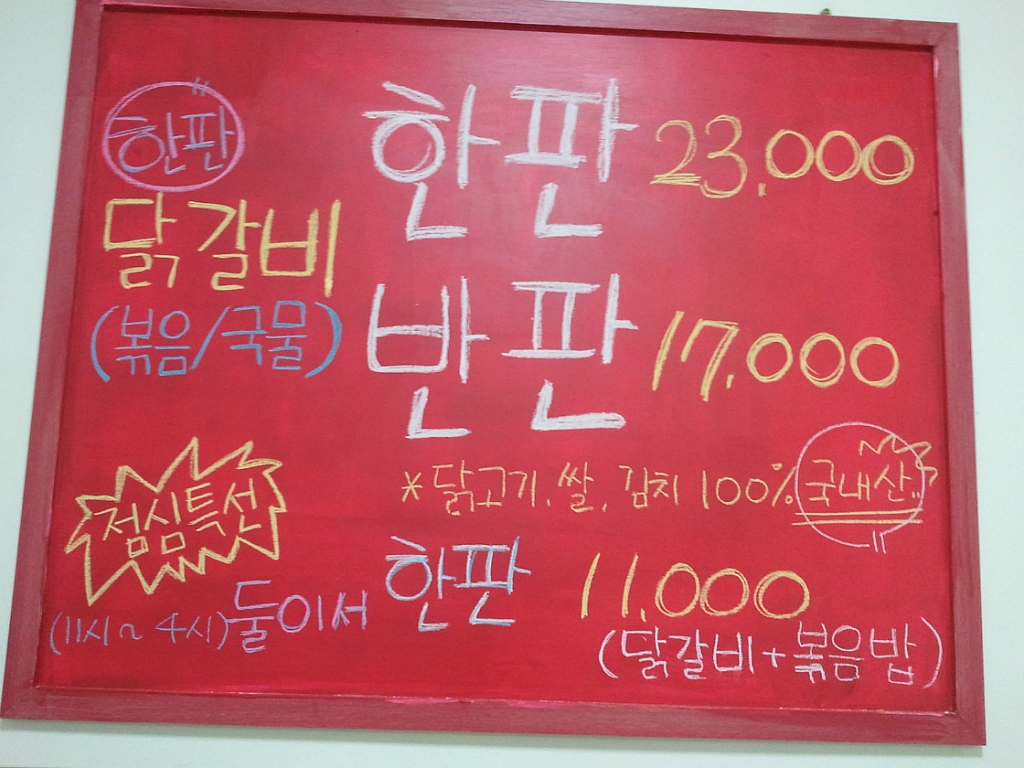 한판
닭갈비
(볶음/국물)
한판 23,000
반판 17,000
*닭고기, 쌀, 김치 100% 국내산
점심특선
(11시~4시) 둘이서 한판 11,000
(닭갈비+볶음밥)